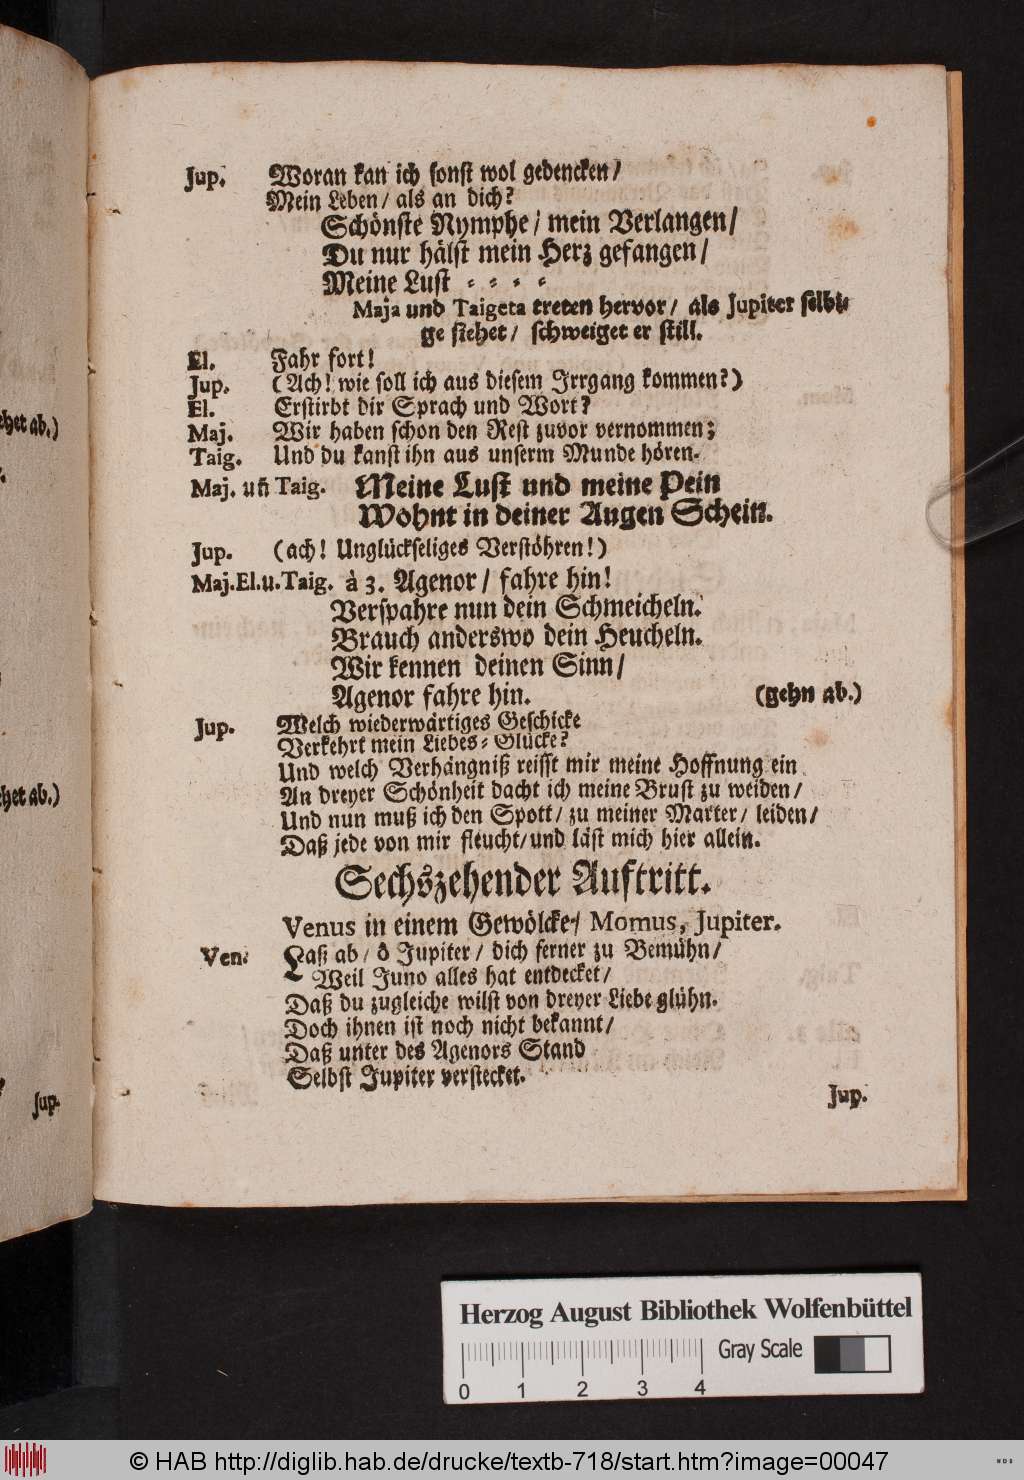 Jup. Woran kan ich sonst wol gedencken/
Mein Leben/ als an dich?
Schönste Nymphe/ mein Verlangen/
Du nur hälst mein Herz gefangen/
Meine Lust - - - -
Maja und Taigeta treten hervor/ als Jupiter selbi-
ge siehet/ schweiget er still.
El. Fahr fort!
Jup. (Ach! wie soll ich aus diesem Irrgang kommen?)
El. Erstirbt dir Sprach und Wort?
Maj. Wir haben schon den Rest zuvor vernommen;
Taig. Und du kanst ihn aus unserm Munde hören.
Maj. uñ Taig. Meine Lust und meine Pein
Wohnt in deiner Augen Schein.
Jup. (ach! Unglückseliges Verstöhren!)
Maj.El.u.Taig. à 3. Agenor/ fahre hin!
Verspahre nun dein Schmeicheln.
Brauch anderswo dein Heucheln.
Wir kennen deinen Sinn/
Agenor fahre hin. (gehn ab.)
Jup. Welch wiederwärtiges Geschicke
Verkehrt mein Liebes-Glücke?
Und welch Verhängniß reisst mir meine Hoffnung ein
An dreyer Schönheit dacht ich meine Brust zu weiden/
Und nun muß ich den Spott/ zu meiner Marter/ leiden/
Daß jede von mir fleucht/ und läst mich hier allein.
Sechszehender Auftritt.
Venus in einem Gewölcke/ Momus, Jupiter.
Ven. Laß ab/ ô Jupiter/ dich ferner zu Bemühn/
Weil Juno alles hat entdecket/
Daß du zugleiche wilst von dreyer Liebe glühn.
Doch ihnen ist noch nicht bekannt/
Daß unter des Agenors Stand
Selbst Jupiter verstecket.
Jup.
ehet ab.)
ehet ab.)
Jup.
Herzog August Bibliothek Wolfenbüttel
Gray Scale
0 1 2 3 4
© HAB http://diglib.hab.de/drucke/textb-718/start.htm?image=00047